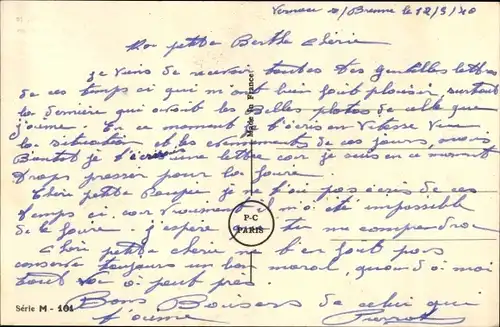 s/Brenne le 12/5/40
Ma petite Berthe Chérie
je viens de recevoir toutes tes gentilles lettres
de ces temps ci qui m'ont bien fait plaisir, surtout
la dernière qui avait les Belles photos de celle que
j'aime. En ce moment je t'écris en Vitesse Vu
la situation et les évènements de ces jours, mais
Bientot je t'écrirai une lettre car je suis en ce moment
trops presser pour la faire
Chère petite je ne t'ai pas écris de ces
temps ci car vraiment il m'a été impossible
de le faire. j'espère que tu me comprendras
Chérie petite chérie ne t'en fait pas
conserve toujours un bon moral, quand à moi
tout va à peut près.
Bons Baisers de celui qui
t'aime Pierrot
Made in France
P-C
PARIS
Série M - 101